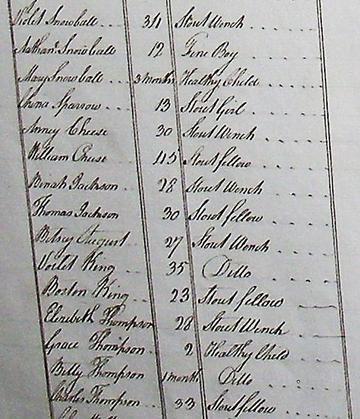 Violet Snowball .. 34 Stout Wench
Nathan. Snowball 12 Fine Boy
Mary Snowball . . 3 months Healthy Child
China Sparrow . . 13 Stout Girl
Anney Cheese 30 Stout Wench
William Cheese 45 Stout fellow
Dinah Jackson 28 Stout Wench
Thomas Jackson 30 Stout fellow
Betsey August 27 Stout Wench
Violet King 35 Ditto
Boston King 23 Stout fellow
Elizabeth Thompson 28 Stout Wench
Grace Thompson 2 Healthy Child
Betty Thompson 1 month Ditto
Charles Thompson 33 Stout fellow